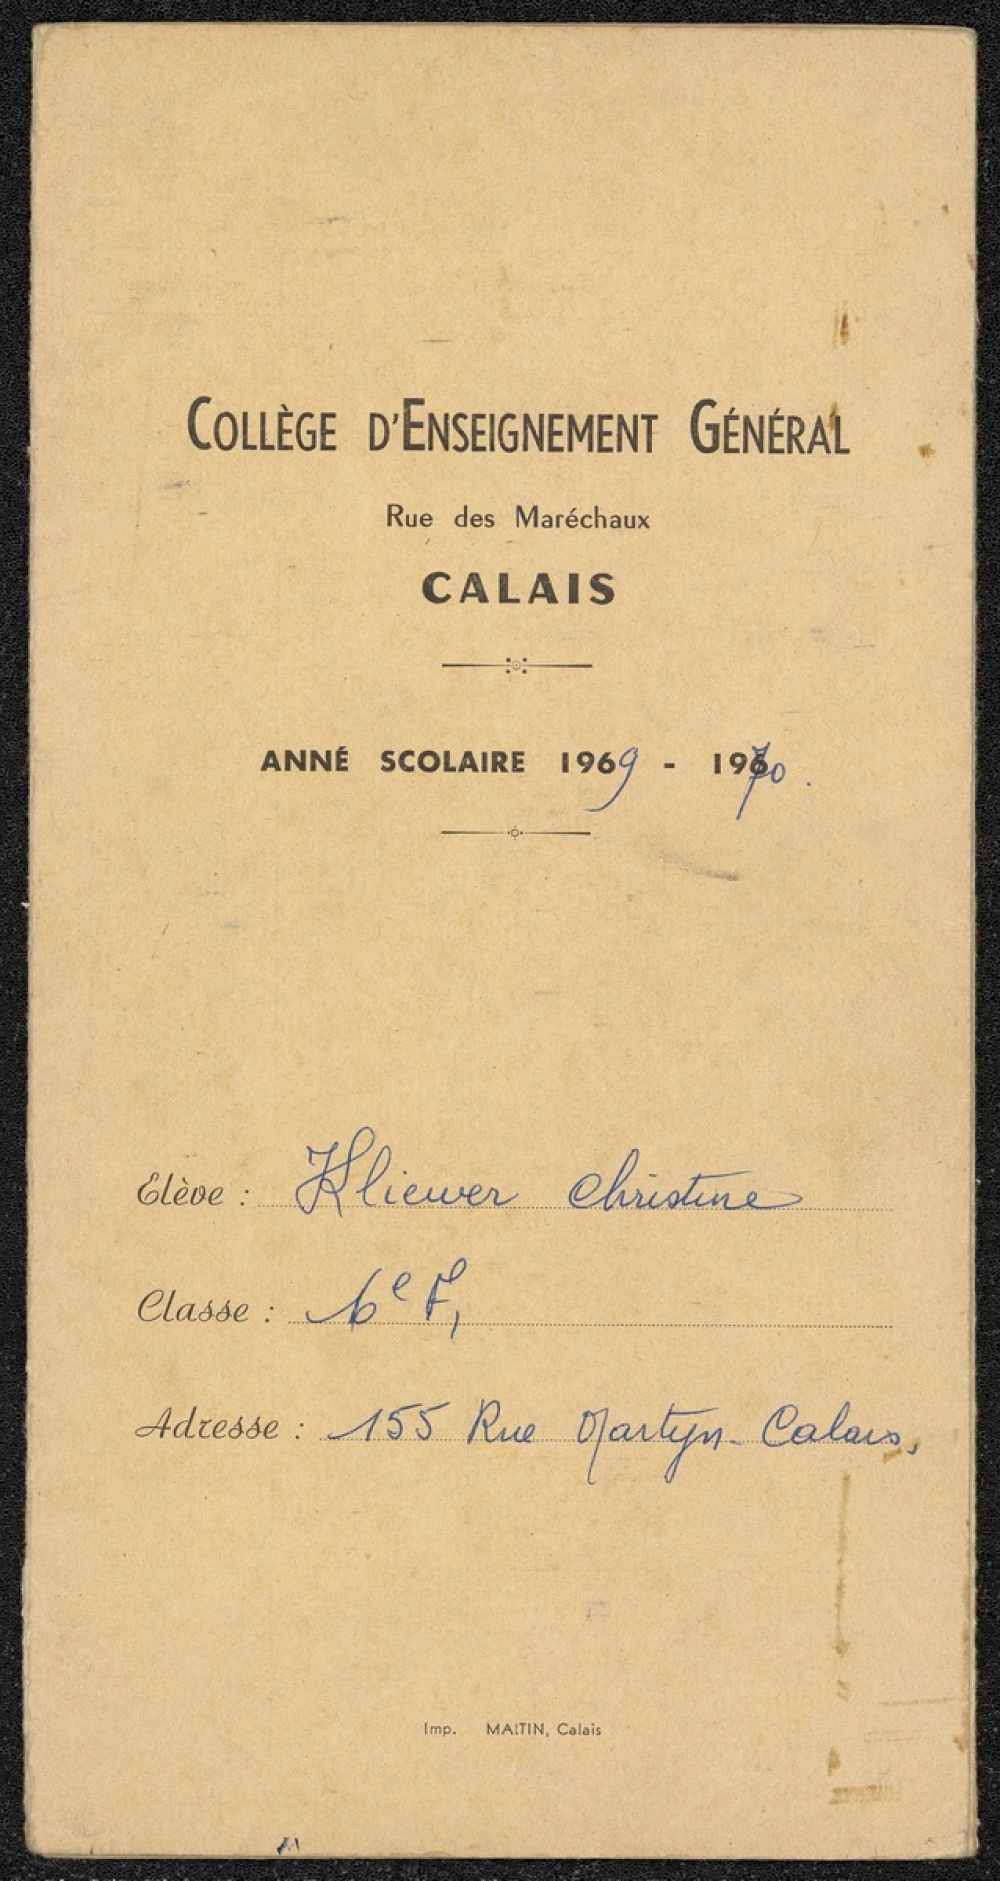 COLLÈGE D'ENSEIGNEMENT GÉNÉRAL
Rue des Maréchaux
CALAIS
ANNÉ SCOLAIRE 1969 - 1970.
Elève : Kliewer Christine
Classe : 6e F,
Adresse : 155 Rue Martyn - Calais.
Imp. MARTIN, Calais